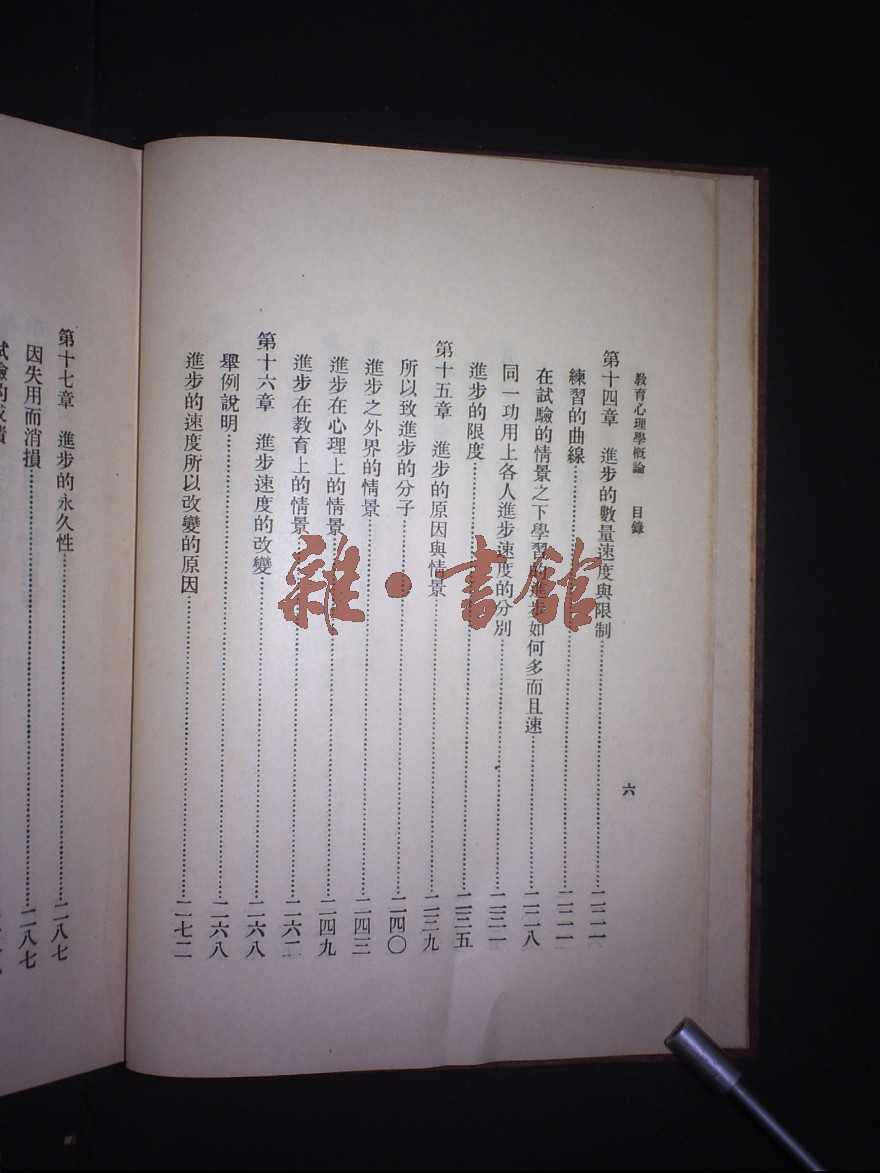 教育心理學概論 目錄 六
第十四章 進步的數量速度與限制……二二一
練習的曲線……二二一
在試驗的情景之下學習的進步如何多而且速……二二八
同一功用上各人進步速度的分別……
進步的限度……二三五
第十五章 進步的原因與情景……二三九
所以致進步的分子……二四〇
進步之外界的情景……二四三
進步在心理上的情景……二四九
進步在教育上的情景……二六二
第十六章 進步速度的改變……二六八
舉例說明……二六八
進步的速度所以改變的原因……二七二
第十七章 進步的永久性……二八七
因失用而消損……二八七
雜·書館